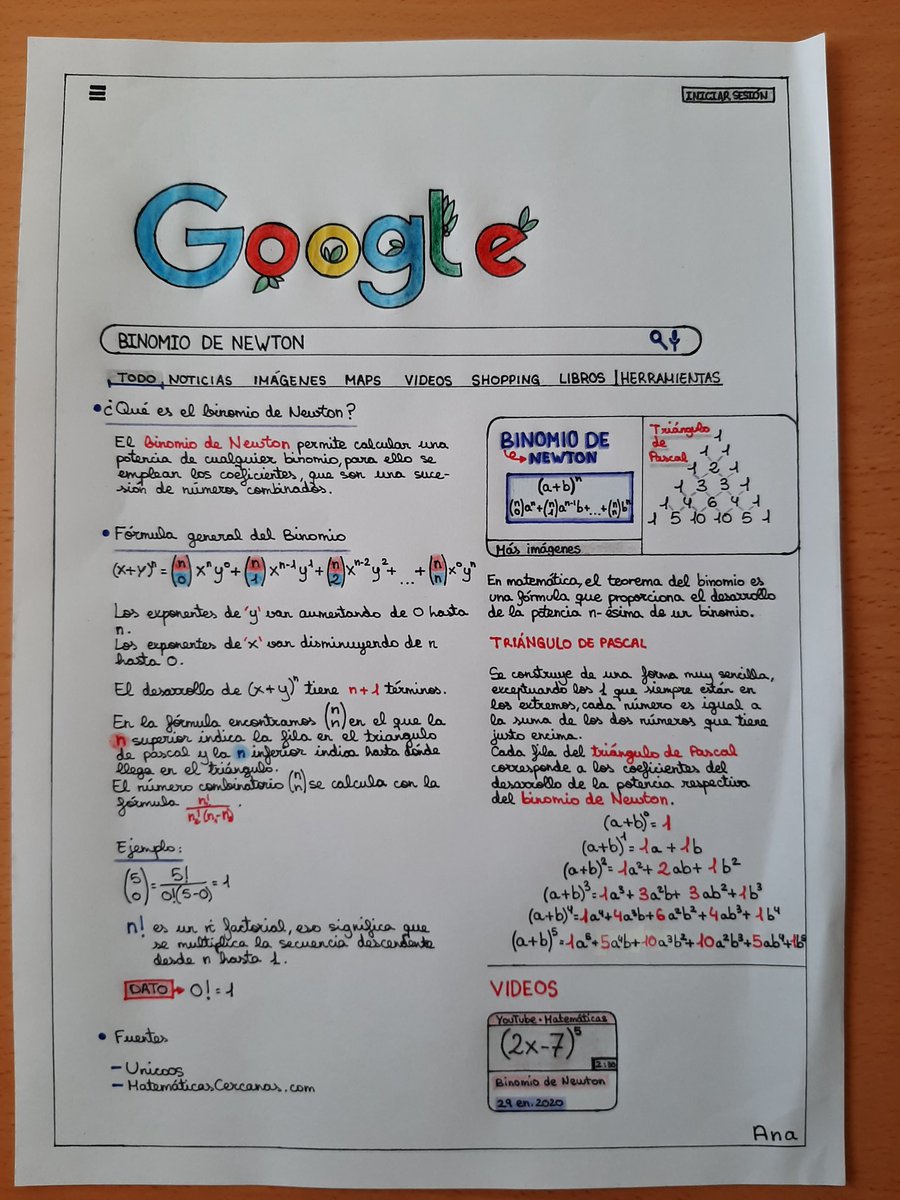 INICIAR SESIÓN
Google
BINOMIO DE NEWTON
TODO NOTICIAS IMÁGENES MAPS VIDEOS SHOPPING LIBROS HERRAMIENTAS
¿Qué es el binomio de Newton?
El Binomio de Newton permite calcular una
potencia de cualquier binomio, para ello se
emplean los coeficientes, que son una suce-
sión de números combinados.
Fórmula general del Binomio
(x+y)ⁿ = (n 0) xⁿy⁰ + (n 1) xⁿ⁻¹y¹ + (n 2) xⁿ⁻²y² + ... + (n n) x⁰yⁿ
Los exponentes de 'y' van aumentando de 0 hasta
n.
Los exponentes de 'x' van disminuyendo de n
hasta 0.
El desarrollo de (x+y)ⁿ tiene n+1 términos.
En la fórmula encontramos (n n) en el que la
n superior indica la fila en el triangulo
de pascal y la n inferior indica hasta dónde
llega en el triángulo.
El número combinatorio (n n) se calcula con la
fórmula
Ejemplo:
(5 0) = 5!/0!(5-0) = 1
n! es un nº factorial, eso significa que
se multiplica la secuencia descendente
desde n hasta 1.
DATO → 0! = 1
Fuentes
- Unicoos
- MatemáticasCercanas.com
BINOMIO DE
NEWTON
(a+b)ⁿ
(n 0)aⁿ+(n 1)aⁿ⁻¹b+...+(n n)bⁿ
Más imágenes
Triángulo
de
Pascal
1
1 1
1 2 1
1 3 3 1
1 4 6 4 1
1 5 10 10 5 1
En matemática, el teorema del binomio es
una fórmula que proporciona el desarrollo
de la potencia n-ésima de un binomio.
TRIÁNGULO DE PASCAL
Se construye de una forma muy sencilla,
exceptuando los 1 que siempre están en
los extremos, cada número es igual a
la suma de los dos números que tiene
justo encima.
Cada fila del triángulo de Pascal
corresponde a los coeficientes del
desarrollo de la potencia respectiva
del binomio de Newton.
(a+b)⁰ = 1
(a+b)¹ = 1a + 1b
(a+b)² = 1a² + 2ab + 1b²
(a+b)³ = 1a³ + 3a²b + 3ab² + 1b³
(a+b)⁴ = 1a⁴ + 4a³b + 6a²b² + 4ab³ + 1b⁴
(a+b)⁵ = 1a⁵ + 5a⁴b + 10a³b² + 10a²b³ + 5ab⁴ + 1b⁵
VIDEOS
YouTube · Matemáticas
(2x-7)⁵
Binomio de Newton
29 en. 2020
Ana